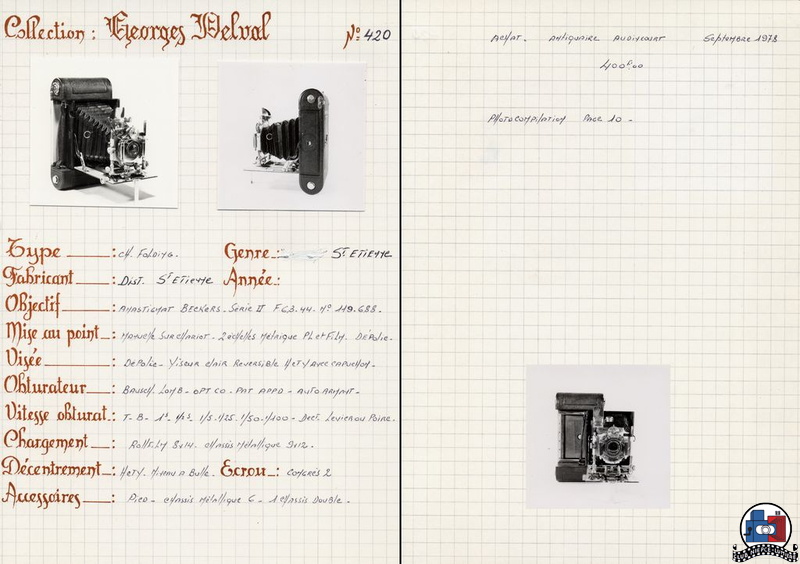 Collection : Georges Delval Nº 420
Type : CH. FOLDING.
Genre : ST ETIENNE
Fabricant : DIST. ST ETIENNE
Année :
Objectif : ANASTIGMAT BECKERS - SÉRIE II F.6.3.44. Nº 119.688.
Mise au point : MANUELLE SUR CHARIOT - 2 ECHELLES MÉTRIQUE PL ET FILM. DÉPOLIE.
Visée : DEPOLIE - VISEUR CLAIR REVERSIBLE H ET V AVEC CAPUCHON.
Obturateur : BAUSCH. LOMB - OPT CO - PAT APPD - AUTO ARMANT -
Vitesse obturat : T- B- 1S. 1/2 S. 1/5. 1/25. 1/50. 1/100 - DECL LEVIER OU POIRE.
Chargement : ROLLFILM 8x14. CHASSIS MÉTALLIQUE 9x12.
Décentrement : H ET V. NIVEAU A BULLE.
Ecrou : CONGRÈS 2
Accessoires : PIED - CHASSIS MÉTALLIQUE 6 - 1 CHASSIS DOUBLE.
ACHAT. ANTIQUAIRE AUDINCOURT SEPTEMBRE 1973
400F00
PHOTOCOMPILATION PAGE 10 -